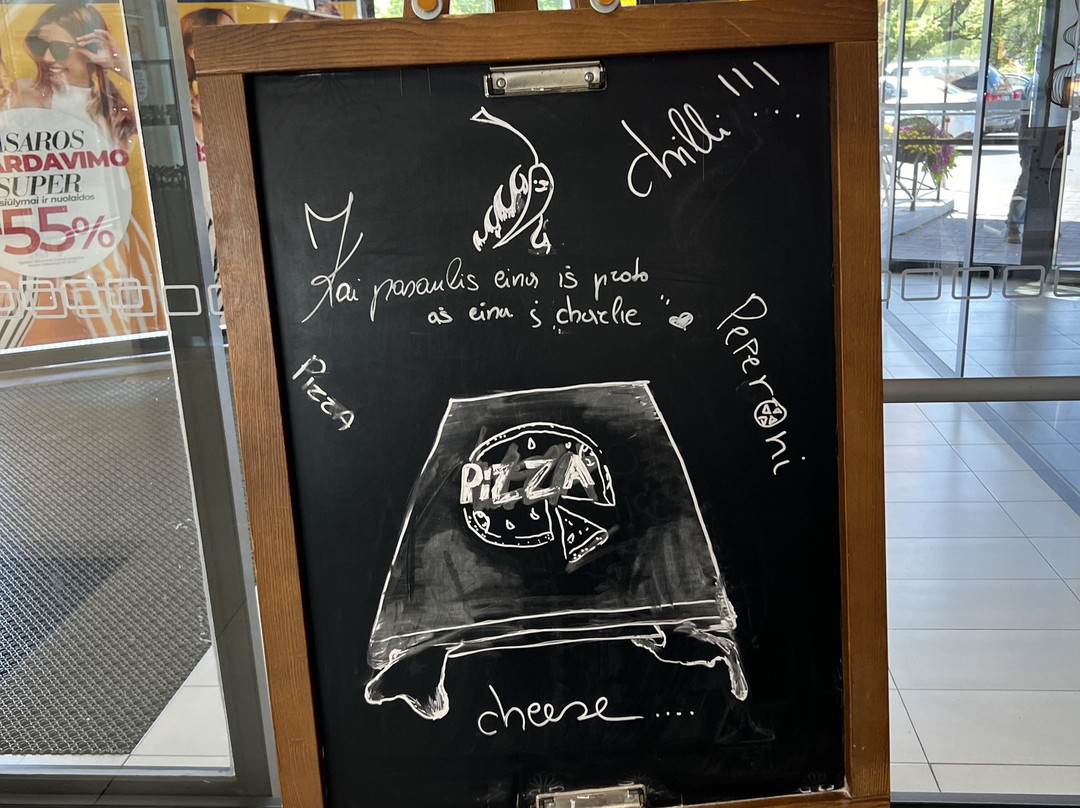 ASAROS
ARDAVIMO
SUPER
siūlymai ir nuolaidos
55%
chilli!!!...
Kai pasaulis eina iš proto
aš einu į „charlie“
PIZZA
PePeroni
PiZZA
cheese....